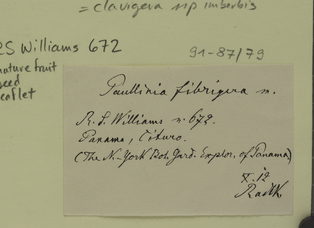 = clavigera ssp imberbis
RS Williams 672
mature fruit
seed
leaflet
91-87/79
Paullinia fibrigera n.
R. S. Williams n. 672.
Panama, Cituro.
(The N.-York Bot. Gard. Explor. of Panama)
X. 12
Radlk